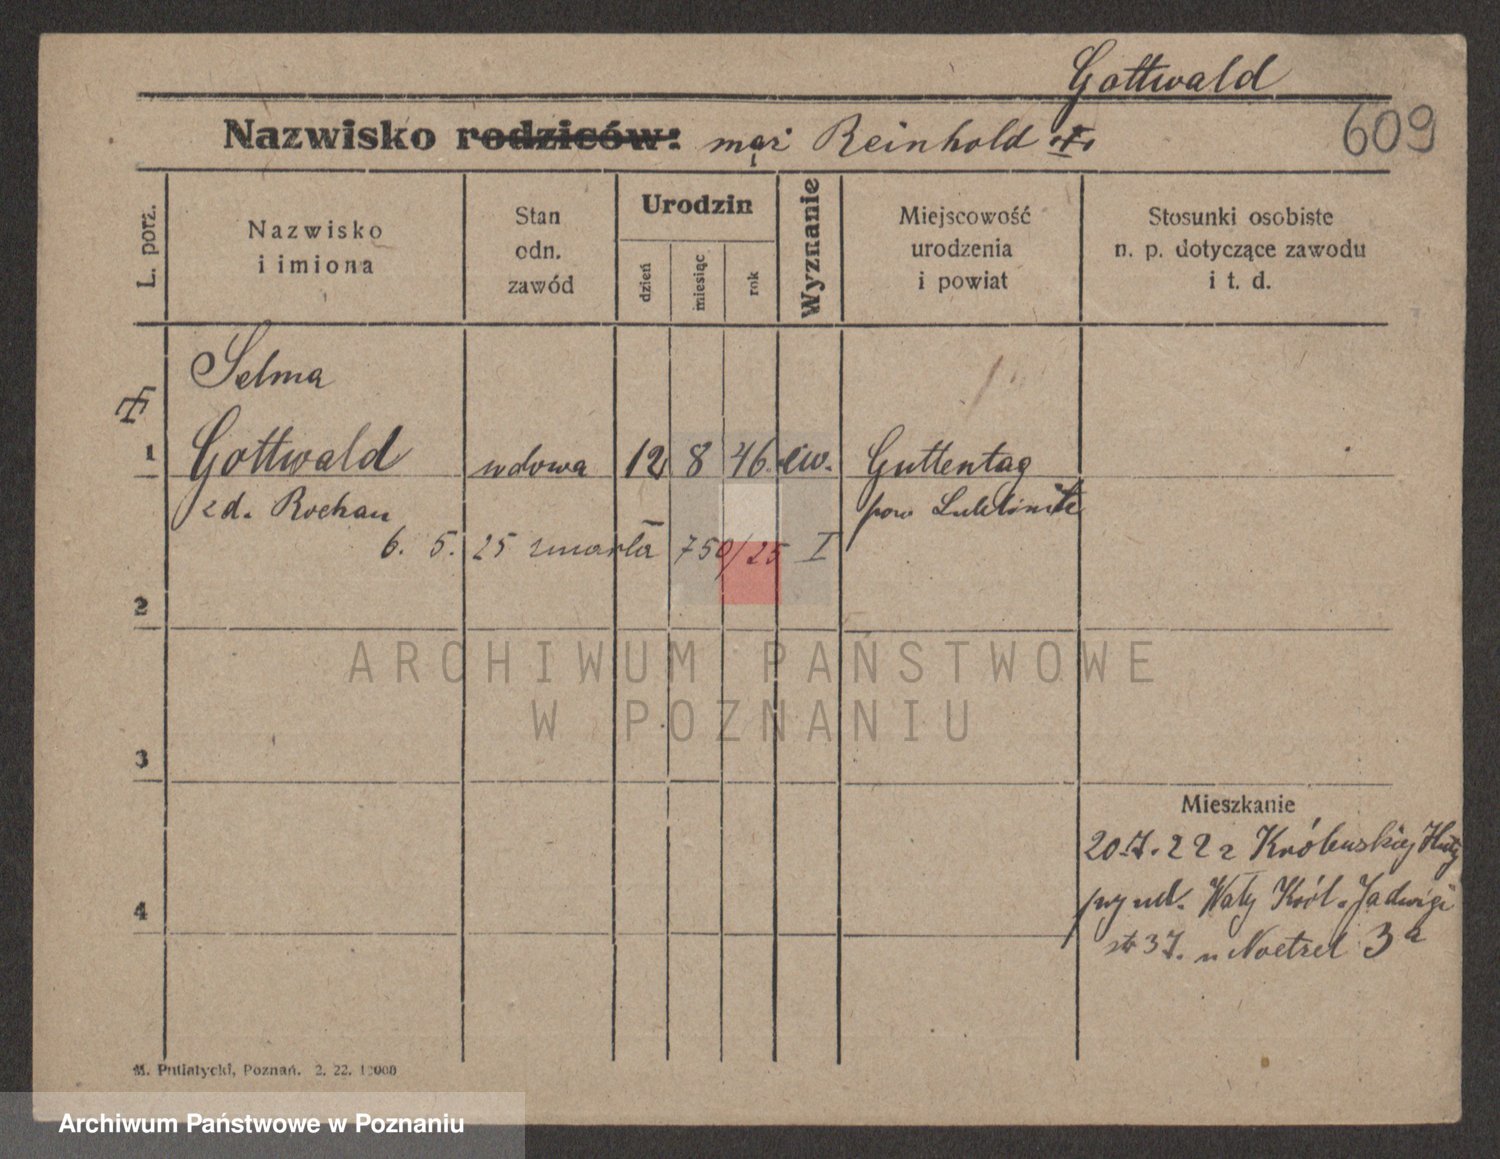 Gottwald
Nazwisko rodziców: mąż Reinhold
609
L. porz.
Nazwisko i imiona
Stan odn. zawód
Urodzin
dzień
miesiąc
rok
Wyznanie
Miejscowość urodzenia i powiat
Stosunki osobiste n. p. dotyczące zawodu i t. d.
Selma
1 Gottwald wdowa 12 8 46 ew. Guttentag
zd. Rochau pow Lublinitz
6. 5. 25 zmarła 750/25 I
2
ARCHIWUM PAŃSTWOWE
W POZNANIU
3
Mieszkanie
20.7.22 z Królewskiej Huty
4 przy ul. Wały Król. Jadwigi
37. u Noetzel 3a
M. Putiatycki, Poznań. 2. 22. 12000
Archiwum Państwowe w Poznaniu